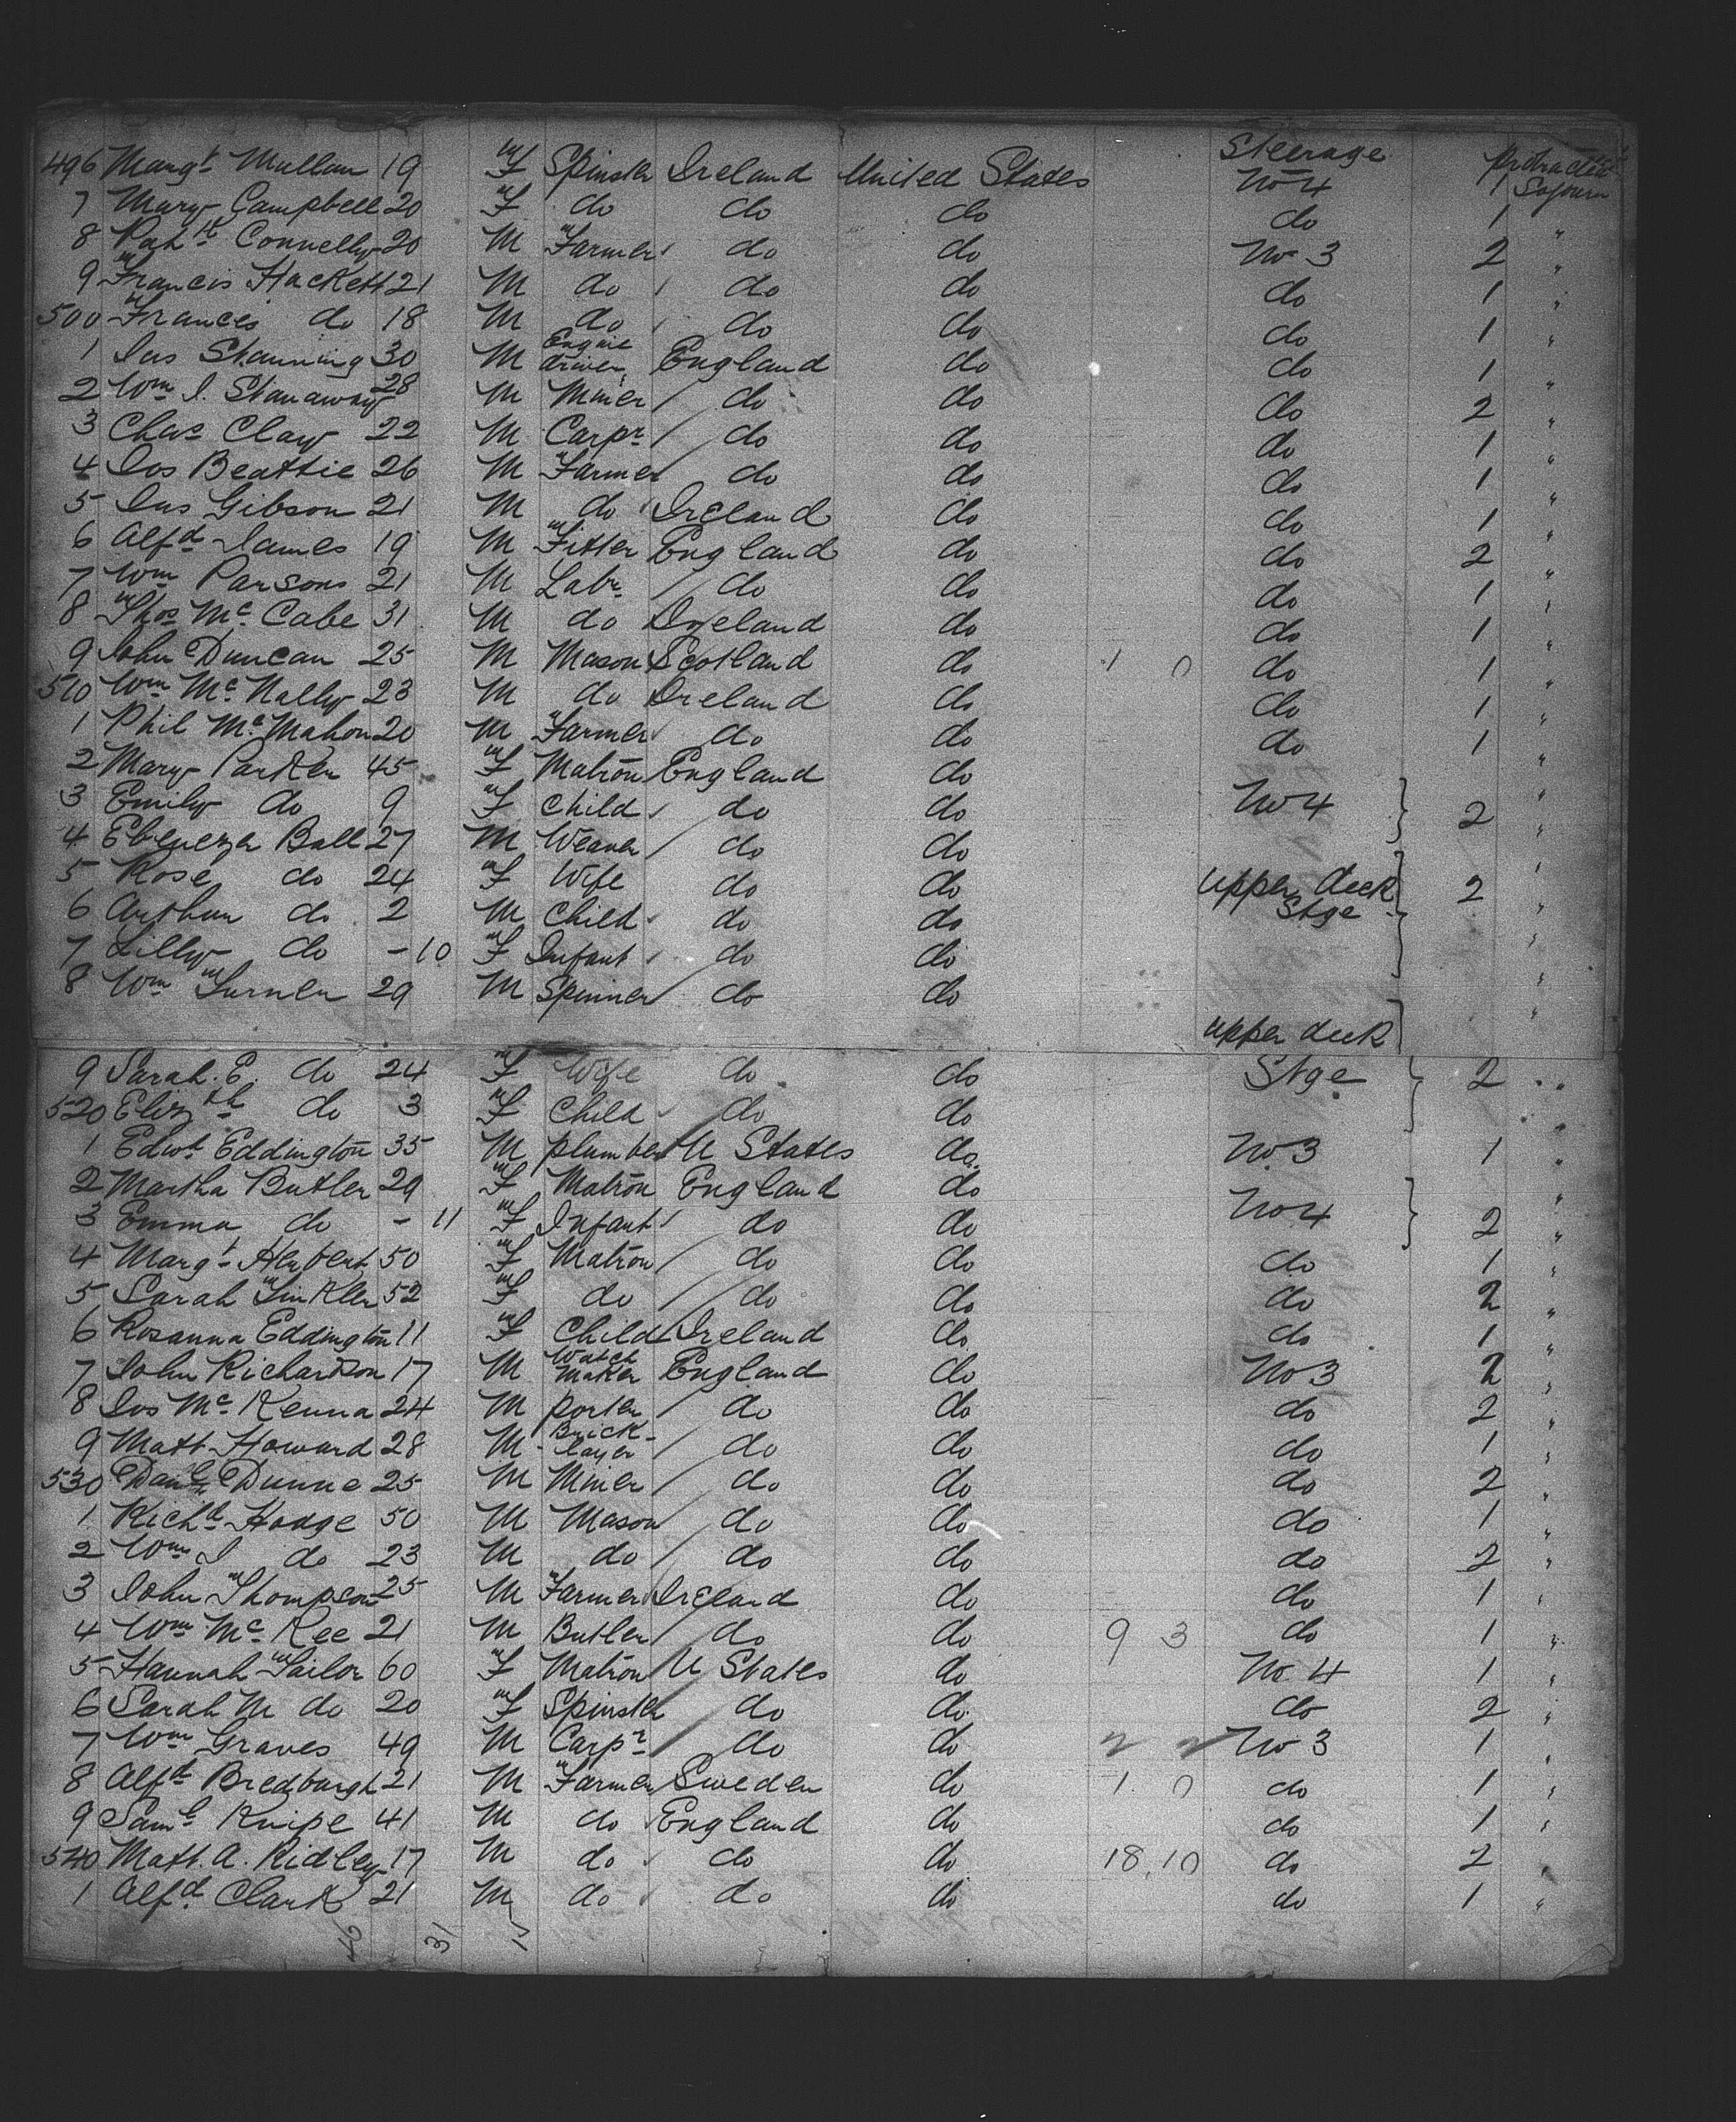 496 Margt Mullan 19 F Spinster Ireland United States Steerage No 4 1 Protracted Sojourn
7 Mary Campbell 20 F do do do do 1 "
8 Patk Connelly 20 M Farmer do do No 3 2 "
9 Francis Hackett 21 M do do do do 1 "
500 Frances do 18 M do do do do 1 "
1 Jas Stanning 30 M Engine driver England do do 1 "
2 Wm J. Stanaway 28 M Miner do do do 2 "
3 Chas Clay 22 M Carpr do do do 1 "
4 Jos Beattie 26 M Farmer do do do 1 "
5 Jas Gibson 21 M do Ireland do do 1 "
6 Alfd James 19 M Fitter England do do 2 "
7 Wm Parsons 21 M Labr do do do 1 "
8 Thos Mc Cabe 31 M do Ireland do do 1 "
9 John Duncan 25 M Mason Scotland do 1 0 do 1 "
510 Wm Mc Nally 23 M do Ireland do do 1 "
1 Phil McMahon 20 M Farmer do do do 1 "
2 Mary Parker 45 F Matron England do "
3 Emily do 9 F Child do do No 4 2 "
4 Ebenezer Ball 27 M Weaver do do "
5 Rose do 24 F Wife do do upper deck 2 "
6 Arthur do 2 M Child do do Stge "
7 Lilly do - 10 F Infant do do "
8 Wm Turner 29 M Spinner do do "
upper deck
9 Sarah. E. do 24 F Wife do do Stge 2 "
520 Elizth do 3 F Child do do "
1 Edwd Eddington 35 M plumber U States do No 3 1 "
2 Martha Butler 29 F Matron England do "
3 Emma do - 11 F Infant do do No 4 2 "
4 Margt Herbert 50 F Matron do do do 1 "
5 Sarah Tinkler 52 F do do do do 2 "
6 Rosanna Eddington 11 F Child Ireland do do 1 "
7 John Richardson 17 M Watch Maker England do No 3 2 "
8 Jos Mc Kenna 24 M porter do do do 2 "
9 Matt Howard 28 M Brick-layer do do do 1 "
530 Danl Dunne 25 M Miner do do do 2 "
1 Richd Hodge 50 M Mason do do do 1 "
2 Wm J do 23 M do do do do 2 "
3 John Thompson 25 M Farmer Ireland do do 1 "
4 Wm Mc Kee 21 M Butler do do 9 3 do 1 "
5 Hannah Tailor 60 F Matron U States do No 4 1 "
6 Sarah M do 20 F Spinster do do do 2 "
7 Wm Graves 49 M Carpr do do 2 2 No 3 1 "
8 Alfd Bredburgh 21 M Farmer Sweden do 1 0 do 1 "
9 Saml Knipe 41 M do England do do 1 "
540 Matt. A. Ridley 17 M do do do 18,10 do 2 "
1 Alfd Clark 21 M do do do do 1 "
46 31 15